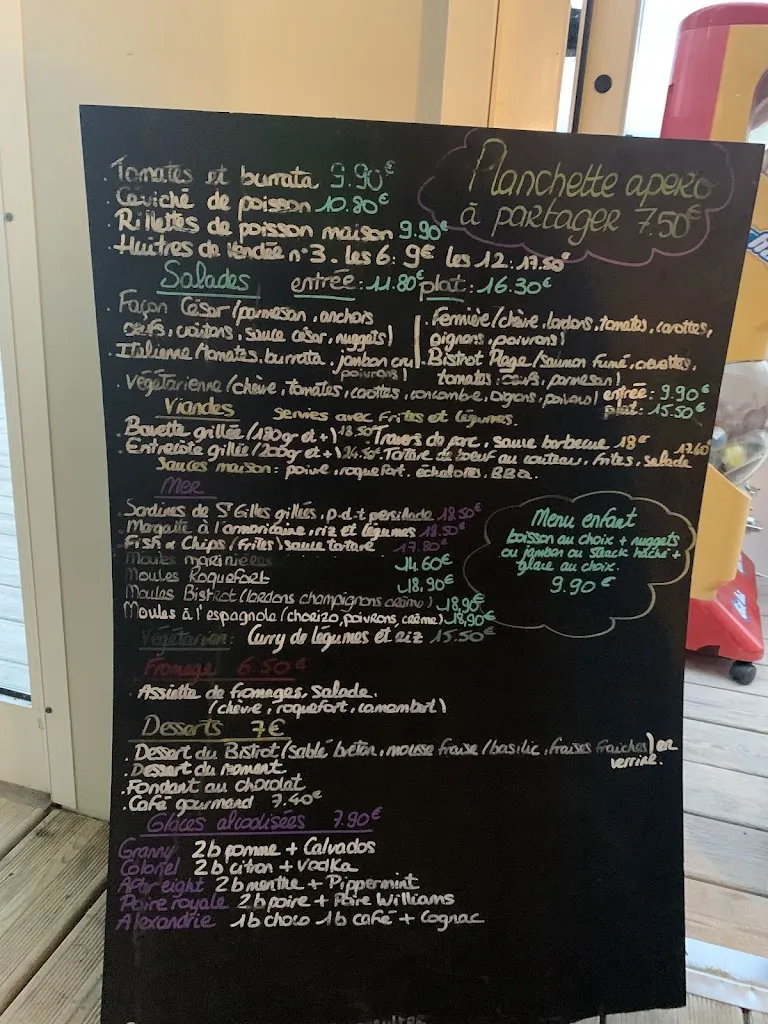 . Tomates et burrata 9.90€
. Céviché de poisson 10.80€
. Rillettes de poisson maison 9.90€
. Huîtres de Vendée n°3. les 6: 9€ les 12: 17.50€
Planchette apéro
à partager 7.50€
Salades entrée: 11.80€ plat: 16.30€
. Façon César (parmesan, anchois
oeufs, croûtons, sauce césar, nuggets)
. Italienne (tomates, burrata, jambon cru
poivrons)
. Fermière (chèvre, lardons, tomates, carottes,
oignons, poivrons)
. Bistrot Plage (saumon fumé, crevettes,
tomates, oeufs, parmesan)
. Végétarienne (chèvre, tomates, carottes, concombre, oignons, poivrons) entrée: 9.90€
plat: 15.50€
Viandes servies avec frites et légumes.
. Bavette grillée (180gr et +) 18.50€ . Travers de porc, sauce barbecue 18€
. Entrecôte grillée (200gr et +) 24.50€ . Tartare de boeuf au couteau, frites, salade 17.60€
Sauces maison: poivre, roquefort, échalotes, BBQ.
Mer
. Sardines de St Gilles grillées, p.d.t persillade 18.50€
. Margatte à l'armoricaine, riz et légumes 18.50€
. Fish & Chips (frites) sauce tartare 17.80€
Moules marinières 14.60€
Moules Roquefort 18,90€
Moules Bistrot (lardons champignons crème) 18,90€
Moules à l'espagnole (chorizo, poivrons, crème) 18,90€
Menu enfant
boisson au choix + nuggets
ou jambon ou steack hâché +
glace au choix.
9.90€
Végétarien: Curry de légumes et riz 15.50€
Fromage 6.50€
. Assiette de fromages, salade.
(chèvre, roquefort, camembert)
Desserts 7€
. Dessert du Bistrot (sablé breton, mousse fraise/basilic, fraises fraîches) en
verrine.
. Dessert du moment
. Fondant au chocolat
. Café gourmand 7.40€
Glaces alcoolisées 7.90€
Granny 2b pomme + Calvados
Colonel 2b citron + Vodka
After eight 2b menthe + Pippermint
Poire royale 2b poire + Poire Williams
Alexandrie 1b choco 1b café + Cognac